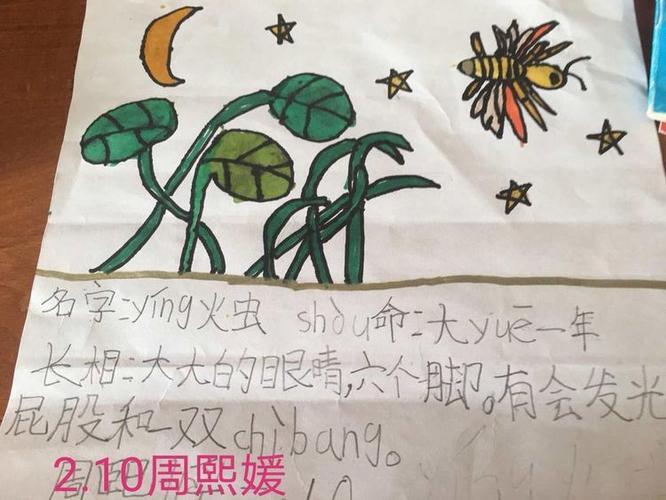 名字:yíng火虫 shòu命:大yuē一年
长相:大大的眼睛,六个脚。有会发光
屁股和一双chìbang。
2.10周熙媛